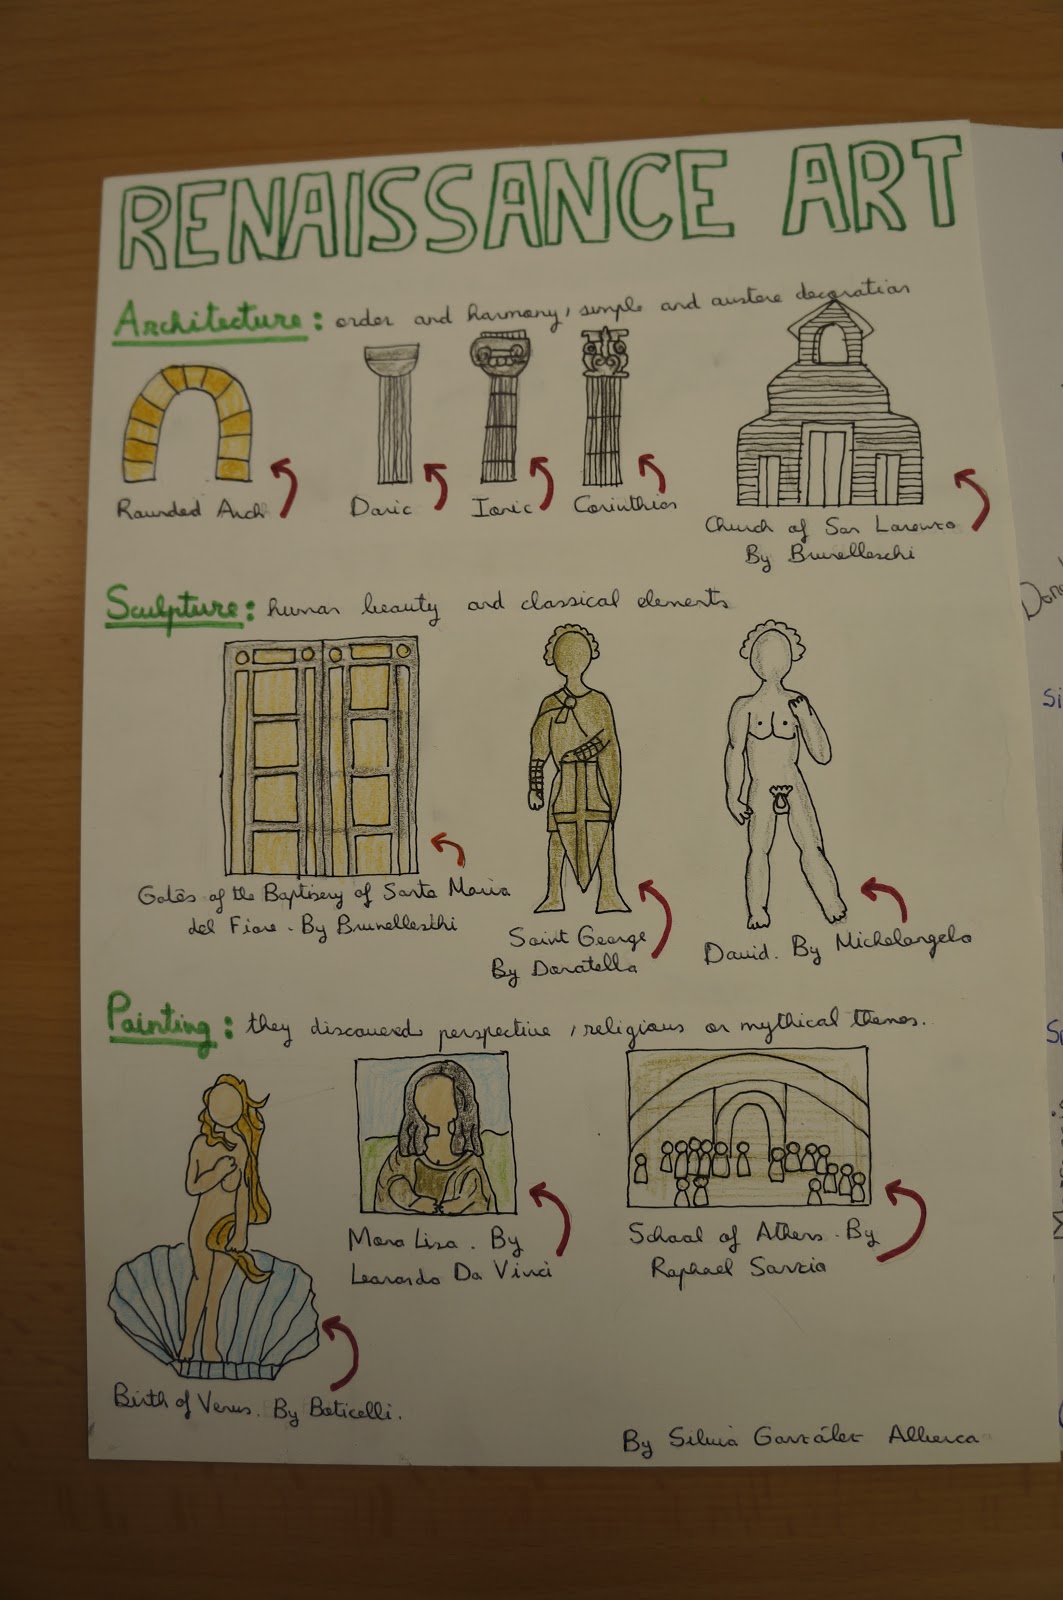 RENAISSANCE ART
Architecture: order and harmony, simple and austere decoration
Rounded Arch
Doric
Ionic
Corinthian
Church of San Lorenzo
By Brunelleschi
Sculpture: human beauty and classical elements
Gates of the Baptisery of Santa Maria
del Fiore. By Brunelleschi
Saint George
By Donatella
David. By Michelangelo
Painting: they discovered perspective, religious or mythical themes.
Mona Lisa. By
Leonardo Da Vinci
School of Athens. By
Raphael Sanzio
Birth of Venus. By Boticelli.
By Silvia González Alberca
Si